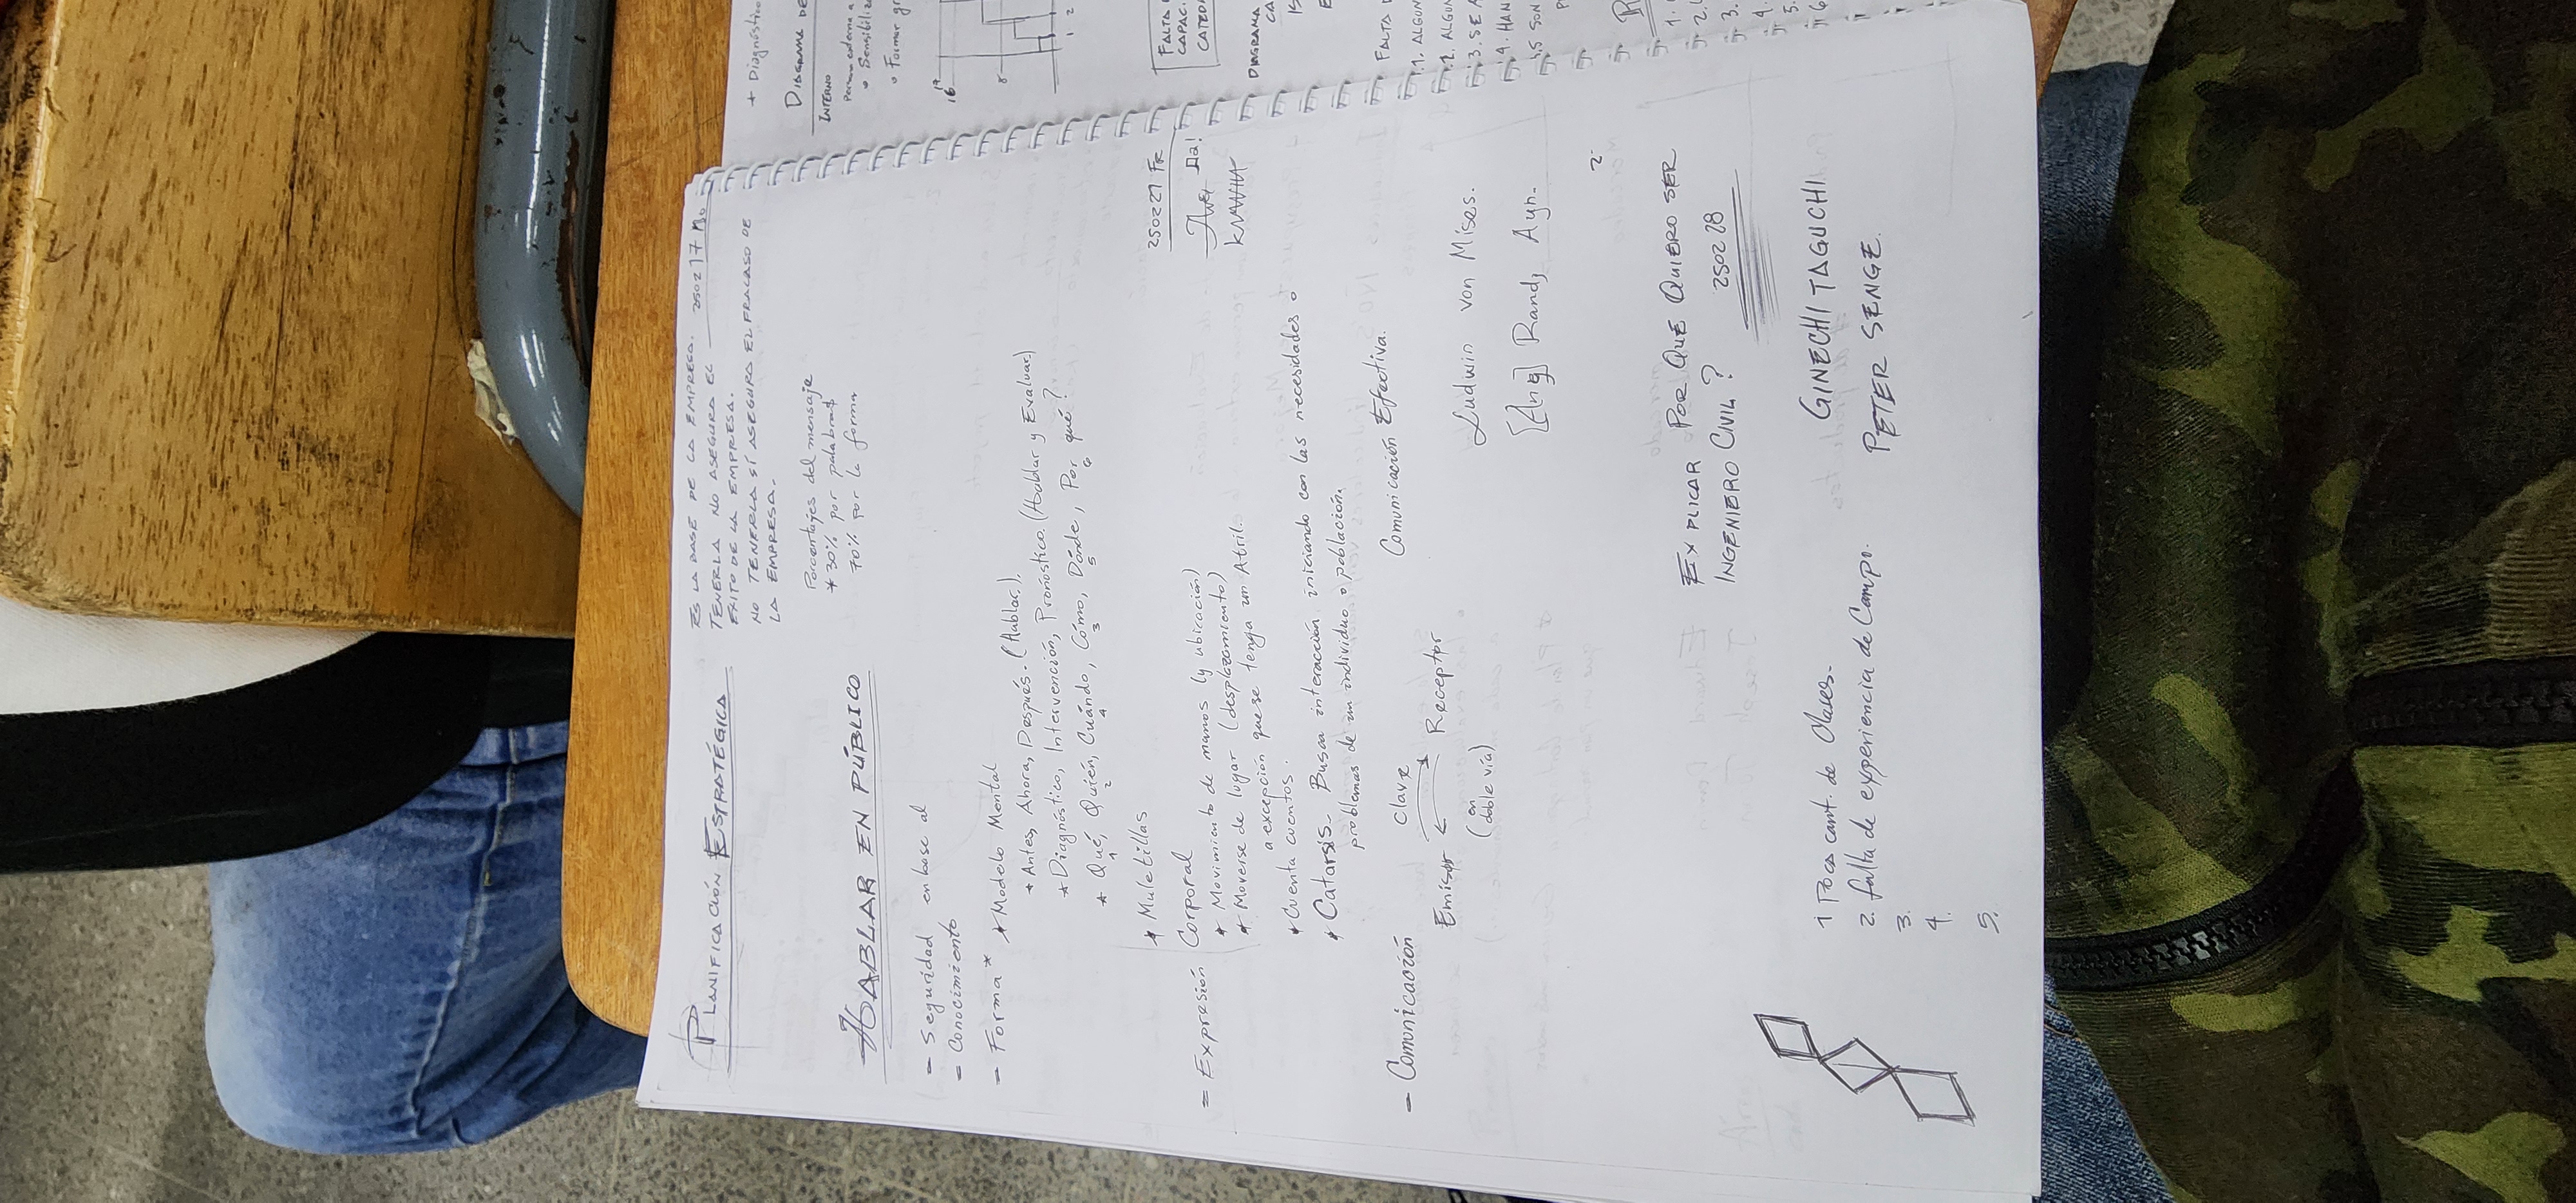 PLANIFICACIÓN ESTRATÉGICA
ES LA BASE DE LA EMPRESA.
250217 Mo
TENERLA NO ASEGURA EL
ÉXITO DE LA EMPRESA.
NO TENERLA SÍ ASEGURA EL FRACASO DE
LA EMPRESA.
Porcentajes del mensaje
* 30% por palabras
70% por la forma
HABLAR EN PÚBLICO
- Seguridad en base al
- Conocimiento
- Forma* * Modelo Mental
* Antes, Ahora, Después. (Hablar.).
* Diagnóstico, Intervención, Pronóstico. (Hablar y Evaluar)
* Qué, Quién, Cuándo, Cómo, Dónde, Por qué?
1 2 4 3 5 6
* Muletillas
- Expresión Corporal
* Movimiento de manos (y ubicación)
* Moverse de lugar (desplazamiento)
a excepción que se tenga un Atril.
* Cuenta cuentos.
* Catarsis. Busca interacción iniciando con las necesidades o
problemas de un individuo o población.
250221 Fr
Да!
- Comunicación
Clave
Emisor Receptor
(en doble vía)
Comunicación Efectiva.
Ludwin von Mises.
Rand, Ayn.
2
EXPLICAR POR QUÉ QUIERO SER
INGENIERO CIVIL?
250228
1 Poca cant. de Clases.
2. falta de experiencia de Campo.
3.
4.
5.
GINECHI TAGUCHI
PETER SENGE.
* Diagnóstico
DIAGRAMA DE
INTERNO
Persona externa a
Formar gr
16
8
1 2
FALTA
CAPAC.
DIAGRAMA
CA
FALTA
1. ALGUN
2. ALGUN
3. SE A
4. HAN
5 SON
1.
2.
3.
4.
5.
6